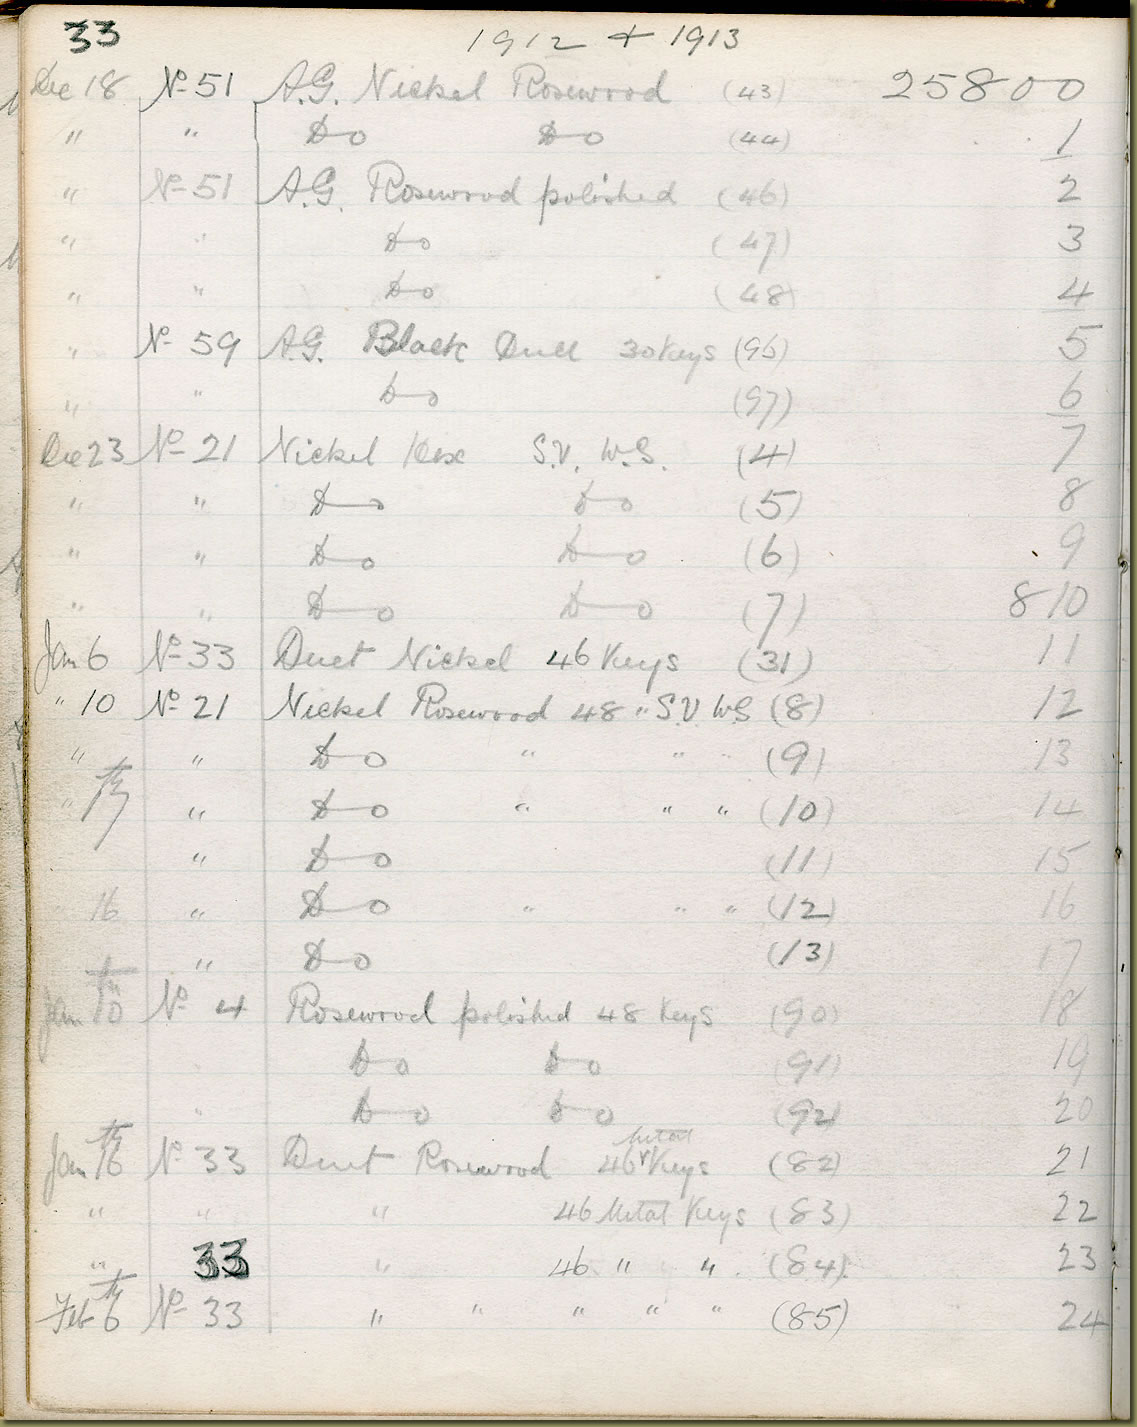 33 1912 + 1913
Dec 18 No 51 A.G. Nickel Rosewood (43) 25800
" " Do Do (44) 1
" No 51 A.G. Rosewood polished (46) 2
" " Do (47) 3
" " Do (48) 4
" No 59 A.G. Black Dull 30 Keys (96) 5
" " Do (97) 6
Dec 23 No 21 Nickel Hex S.V. W.S. (4) 7
" " Do Do (5) 8
" " Do Do (6) 9
" " Do Do (7) 810
Jan 6 No 33 Duet Nickel 46 Keys (31) 11
" 10 No 21 Nickel Rosewood 48 " S.V WS (8) 12
" " Do " " " (9) 13
" 17th " Do " " " (10) 14
" Do (11) 15
16 " Do " " " (12) 16
" Do (13) 17
Jan 10th No 4 Rosewood polished 48 Keys (90) 18
" Do Do (91) 19
" Do Do (92) 20
Jan 16th No 33 Duet Rosewood 46 Metal Keys (82) 21
" " " 46 Metal Keys (83) 22
" 33 " 46 " " (84) 23
Feb 6th No 33 " " " " " (85) 24